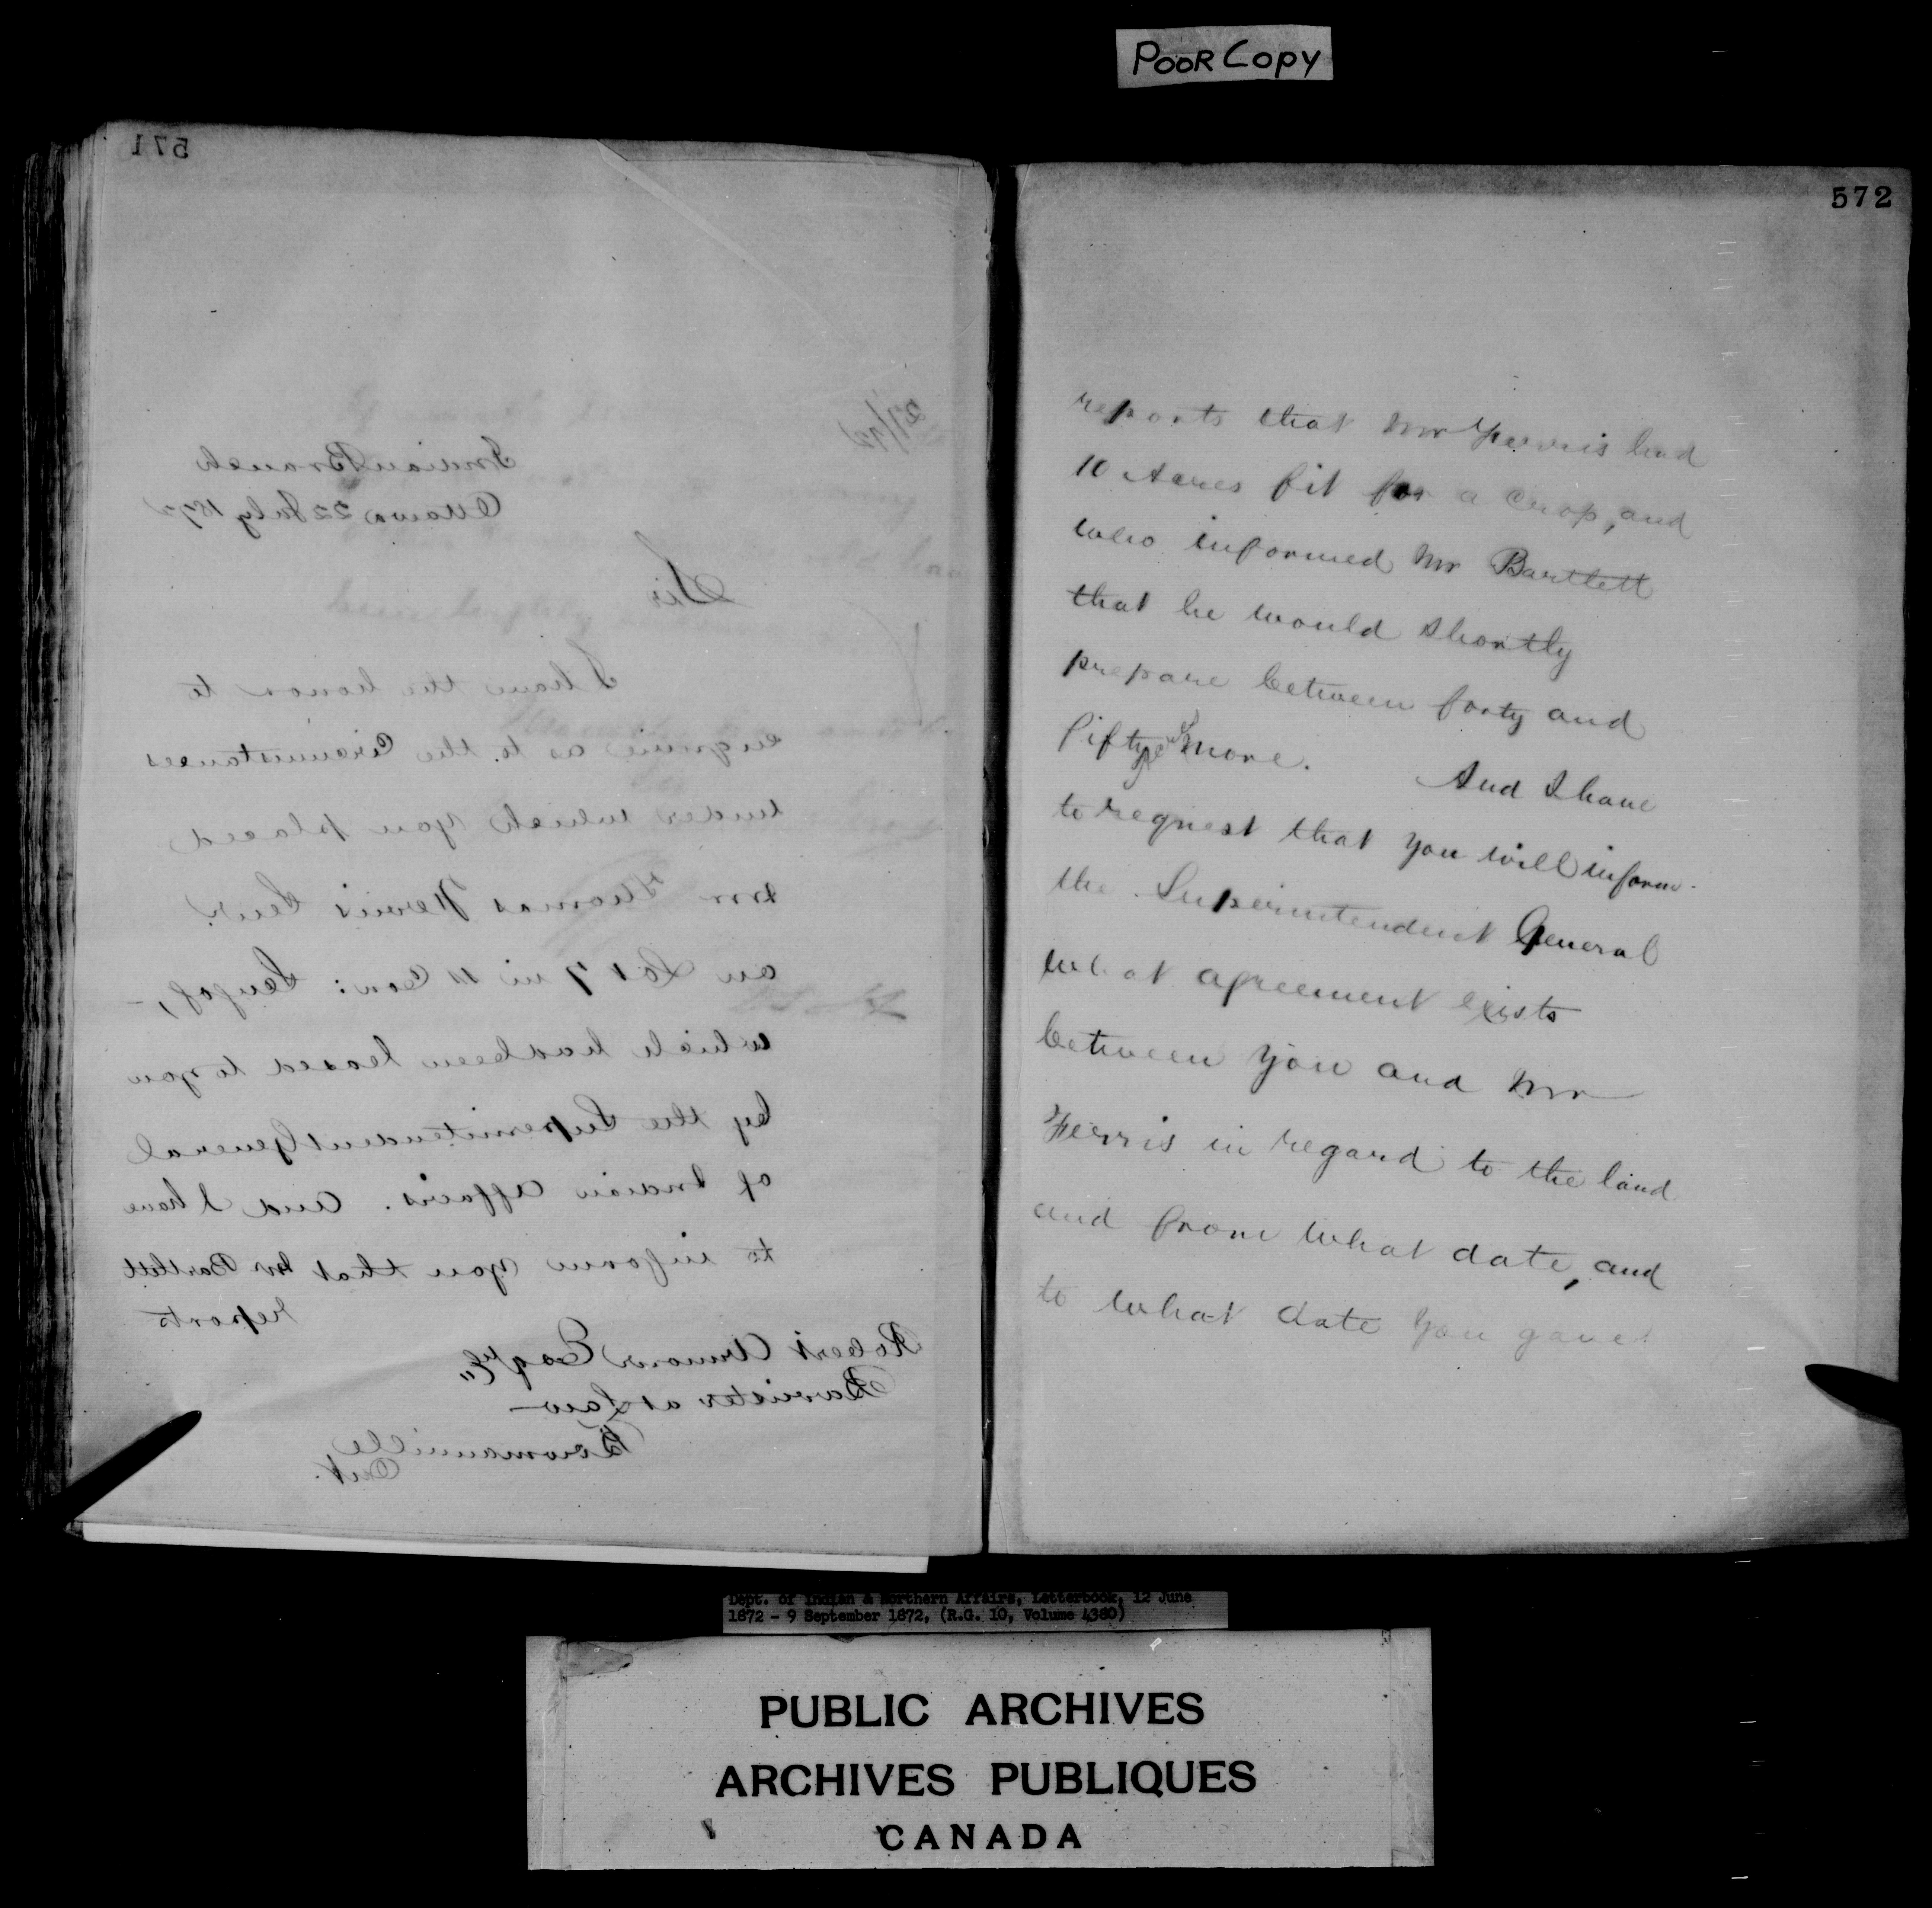 POOR COPY
571
27/72
Indian Branch
Ottawa 22 July 1872
Sir
I have the honor to
enquire as to the Circumstances
under which you placed
Mr Thomas Ferris Senr.
on Lot 7 in 11 Con:
which had been leased to you
by the Superintendent General
of Indian Affairs. And I have
to inform you that Mr Bartlett
reports
Robert Armour Esqre,,
Barrister at Law
Bowmanville
Ont.
572
reports that Mr Ferris had
10 Acres fit for a Crop, and
who informed Mr Bartlett
that he would shortly
prepare between forty and
fifty more. And I have
to request that you will inform
the Superintendent General
what agreement exists
between you and Mr
Ferris in regard to the land
and from what date, and
to what date you gave
Dept. of Indian & Northern Affairs, Letterbook, 12 June
1872 - 9 September 1872, (R.G. 10, Volume 4380)
PUBLIC ARCHIVES
ARCHIVES PUBLIQUES
CANADA